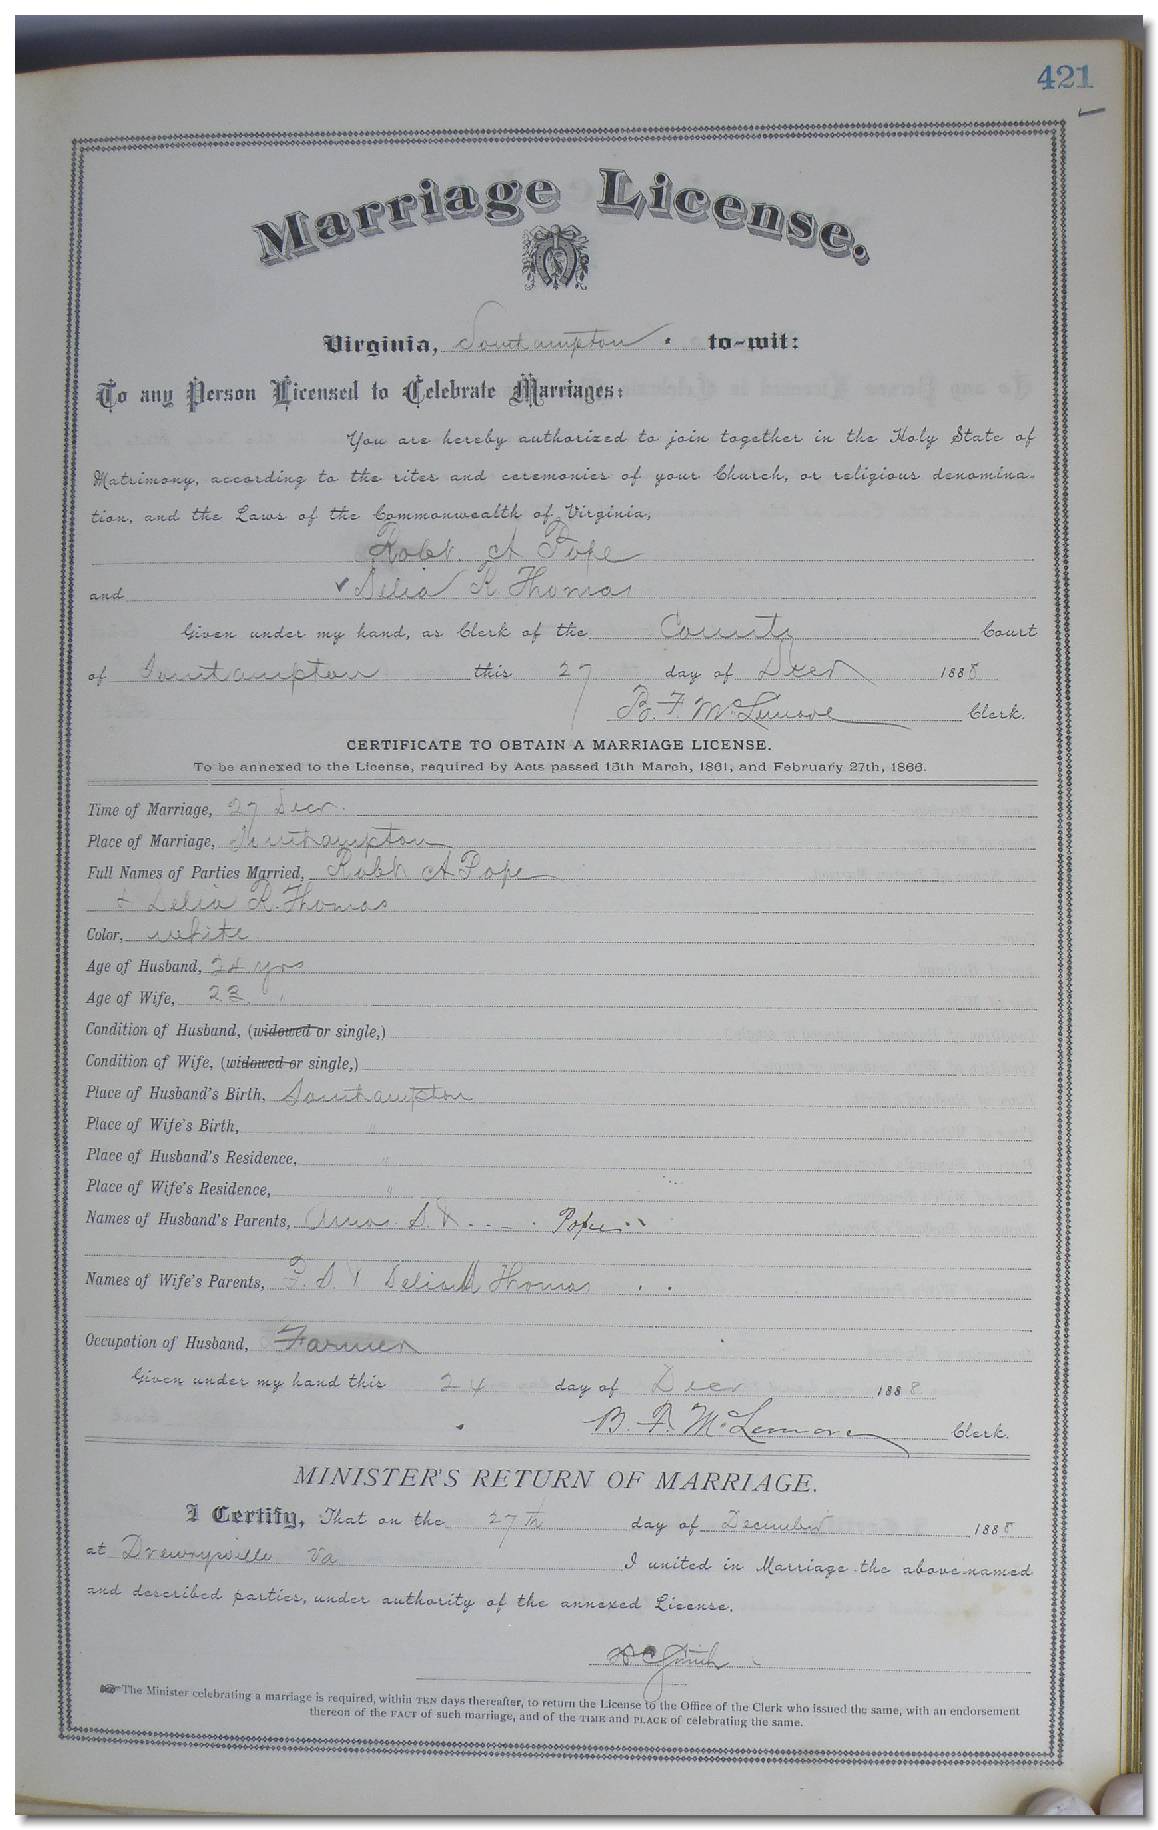 421
Marriage License.
Virginia, Southampton to-wit:
To any Person Licensed to Celebrate Marriages:
You are hereby authorized to join together in the Holy State of
Matrimony, according to the rites and ceremonies of your Church, or religious denomina-
tion, and the Laws of the Commonwealth of Virginia,
Robt. A Pope
and Delia R Thomas
Given under my hand, as Clerk of the County Court
of Southampton this 27 day of Decr 1888
B. F. McLemore Clerk.
CERTIFICATE TO OBTAIN A MARRIAGE LICENSE.
To be annexed to the License, required by Acts passed 15th March, 1861, and February 27th, 1866.
Time of Marriage, 27 Decr.
Place of Marriage, Southampton
Full Names of Parties Married, Robt A Pope
& Delia R. Thomas
Color, white
Age of Husband, 24 yrs
Age of Wife, 22 "
Condition of Husband, (widowed or single,)
Condition of Wife, (widowed or single,)
Place of Husband's Birth, Southampton
Place of Wife's Birth, "
Place of Husband's Residence, "
Place of Wife's Residence, "
Names of Husband's Parents, Pope
Names of Wife's Parents, Delia Thomas
Occupation of Husband, Farmer
Given under my hand this 24 day of Decr 1888
B. F. McLemore Clerk.
MINISTER'S RETURN OF MARRIAGE.
I Certify, That on the 27th day of December 1888
at Drewrysville Va I united in Marriage the above-named
and described parties, under authority of the annexed License.
Smith
The Minister celebrating a marriage is required, within TEN days thereafter, to return the License to the Office of the Clerk who issued the same, with an endorsement
thereon of the FACT of such marriage, and of the TIME and PLACE of celebrating the same.